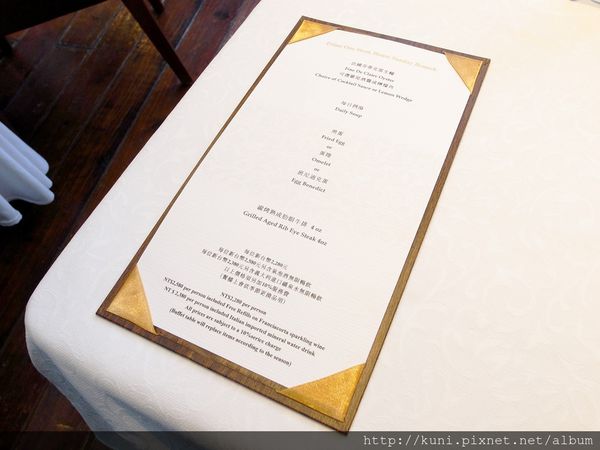 Prime One Steak House Sunday Brunch
法國芬帝克蕾生蠔
Fine De Claire Oyster
Choice of Cocktail Sauce or Lemon Wedge
每日例湯
Daily Soup
煎蛋
Fried Egg
or
蛋捲
Omelet
or
班尼迪克蛋
Egg Benedict
碳烤熟成肋眼牛排 4 oz
Grilled Aged Rib Eye Steak 4oz
每位新台幣2,280元
每位新台幣2,580元另含氣泡酒無限暢飲
每位新台幣2,380元另含義大利進口礦泉水無限暢飲
以上價格需另加10%服務費
(餐檯上會依季節更換品項)
NT$2,280 per person
NT$2,580 per person included Free Refills on Franciacorta sparkling wine
NT$ 2,380 per person included Italian imported mineral water drink
All prices are subject to a 10%service charge
(Buffet table will replace items according to the season)
http://kuni.pixnet.net/album